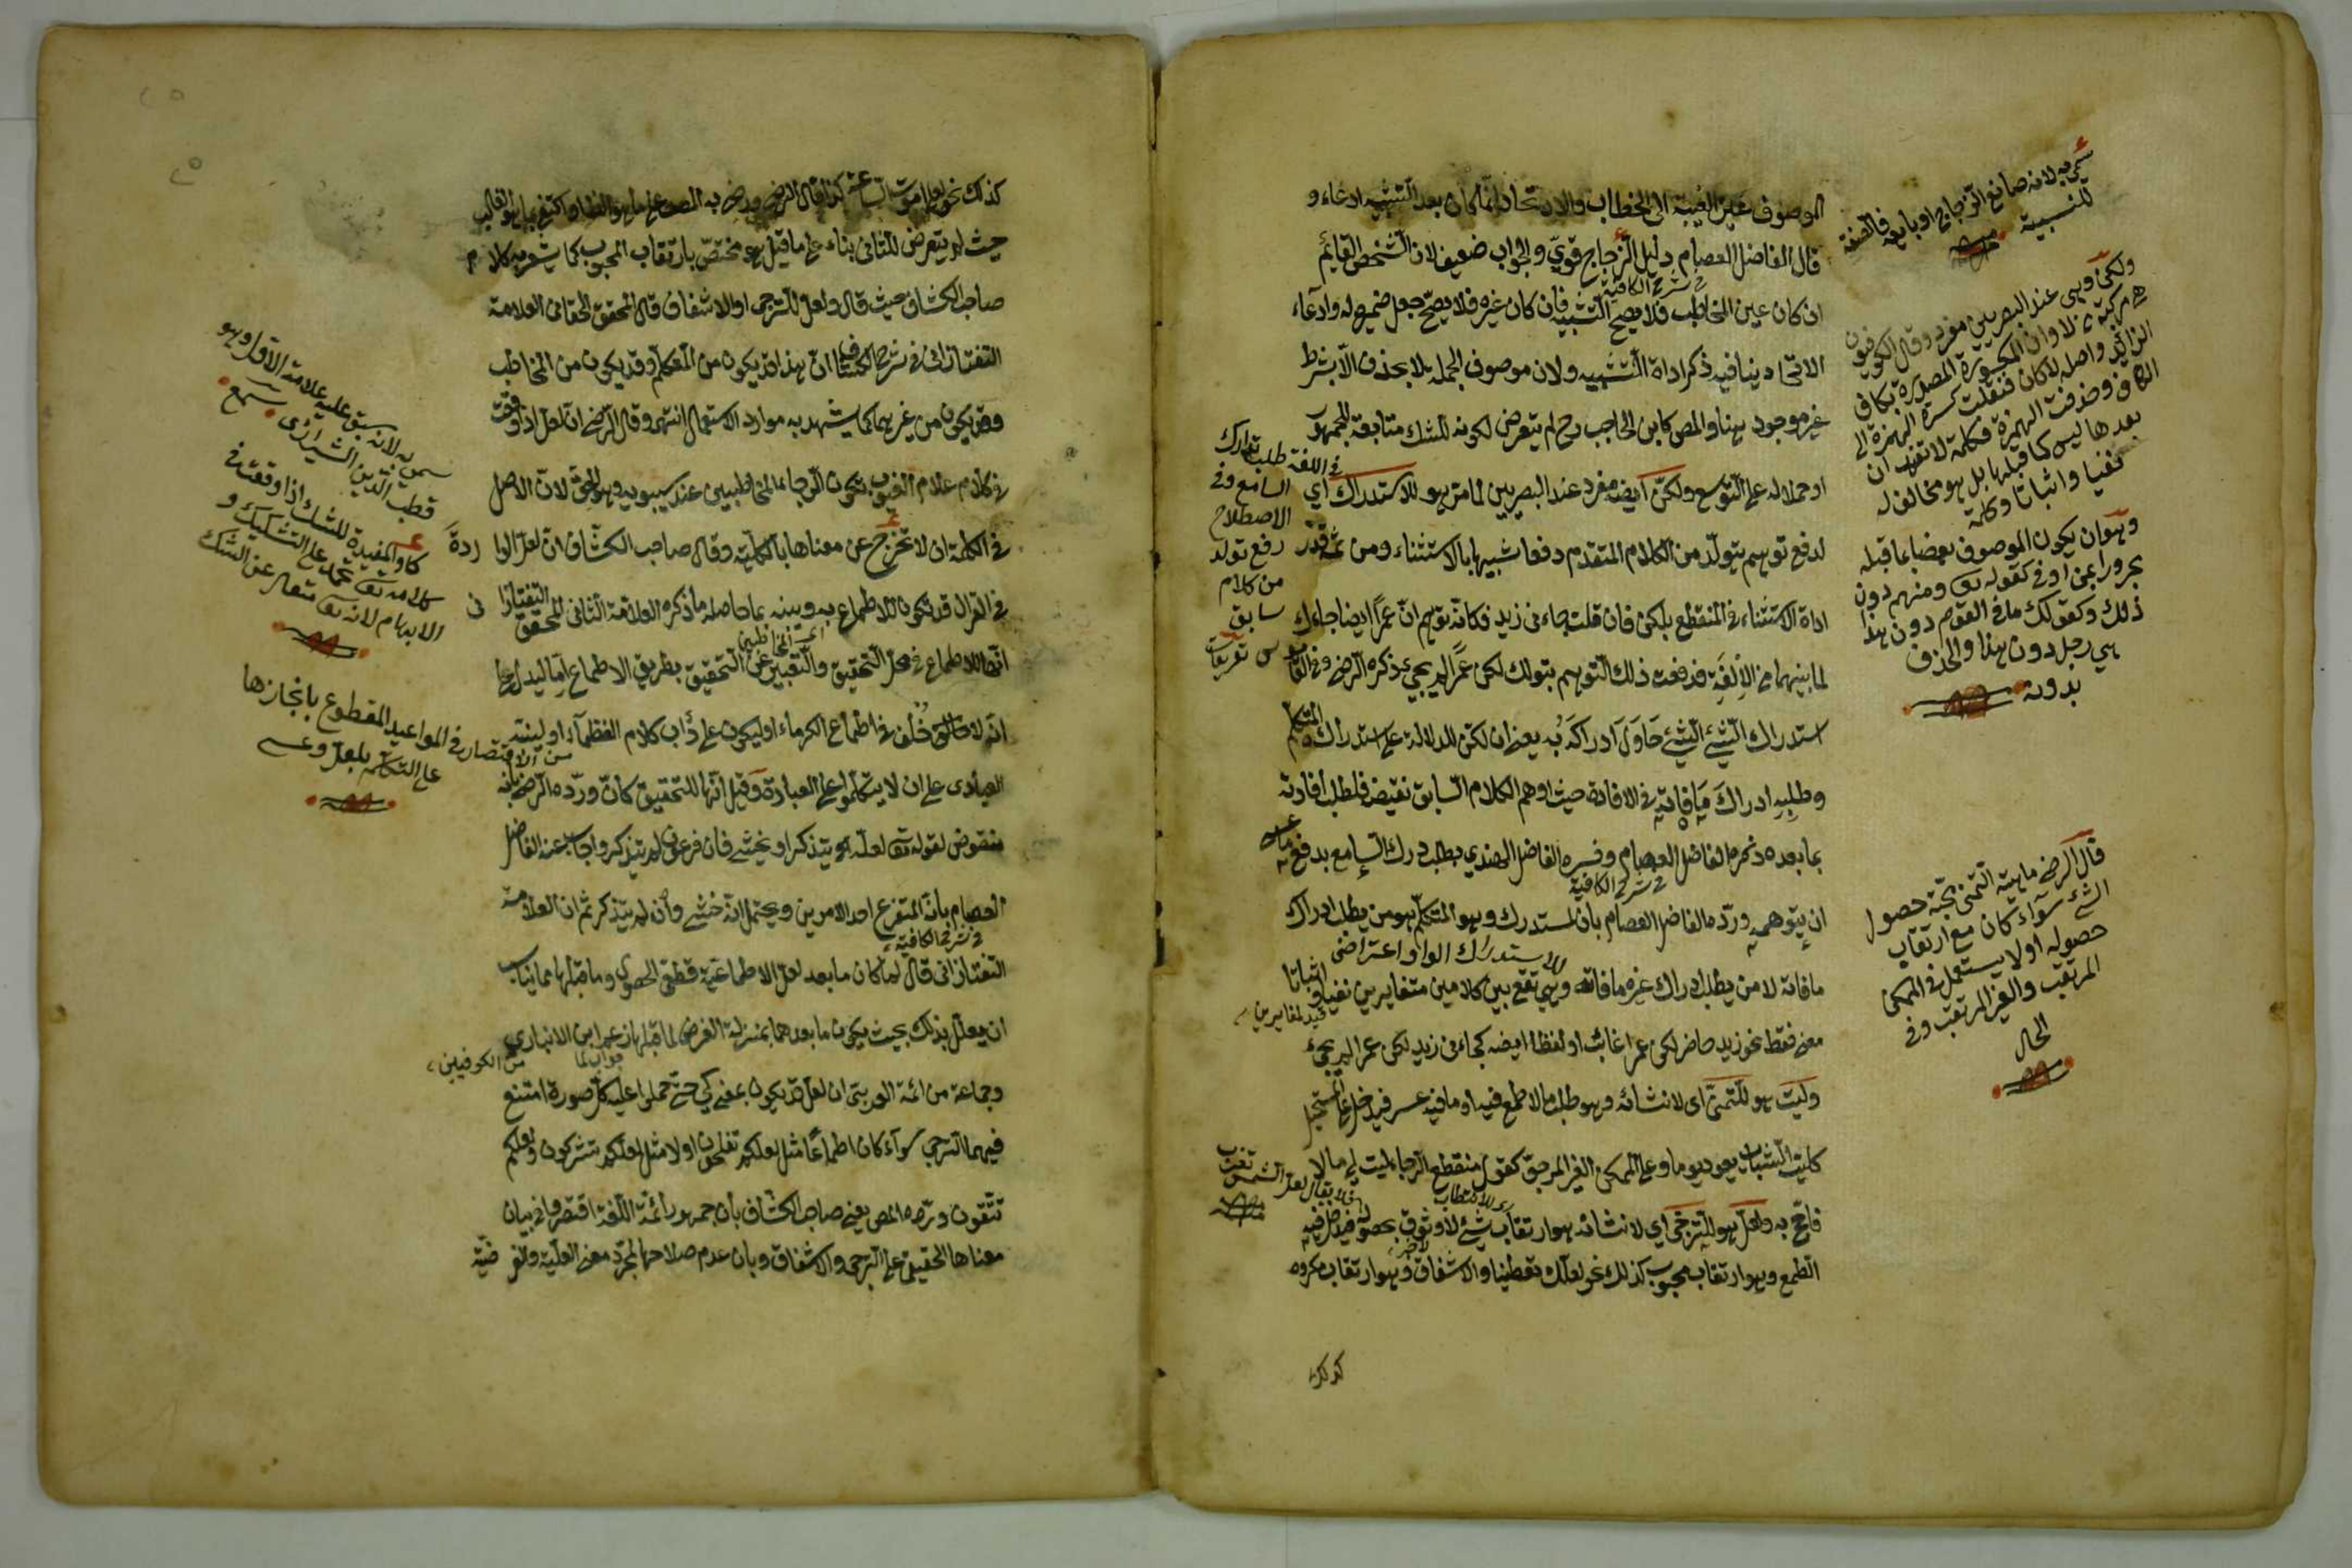 الموصوف عين الغيبة الى الخطاب والاتحاد انما كان بعد التشبيه ادعاء و
قال الفاضل العصام دليل الزجاج قويّ والجواب ضعيف لان الشخص القائم
في شرح الكافية
ان كان عين المخاطب فلا يصح التشبيه فان كان غيره فلا يصح جعل ضميره له وادعاء
الاتحاد ينافيه ذكر اداة التشبيه ولان موصوف الجملة لا يحذف الا بشرط
غير موجود هنا والمص كابن الحاجب رح لم يتعرض لكونه للشك متابعة للجمهور
او حملا له على التوسع ولكنّ ايضه مفرد عند البصريين لما مر هو للاستدراك اي
لدفع توهم يتولد من الكلام المتقدم دفعا شبيها بالاستثناء ومن ثمه قدر
اداة الاستثناء في المنقطع بلكن فان قلت جاءني زيد فكانه توهم ان عمرا ايضا جاءك
لما بينهما من الالفة فدفعت ذلك التوهم بقولك لكن عمرا لم يجئ ذكره الرضي وفي القاموس
استدراك الشيء الشيء حاول ادراكه به يعني ان لكن للدلالة على استدراك المتكلم
وطلبه ادراك ما فاته في الافادة حيث اوهم الكلام السابق نقيضه فلطلب افادته
بما بعده ذكره الفاضل العصام وفسره الفاضل الهندي بطلب درك السامع بدفع ما عسى
في شرح الكافية
ان يتوهمه ورده الفاضل العصام بان المستدرك وهو المتكلم هو من يطلب ادراك
للاستدراك الواو اعتراضي
ما فاته لا من يطلب ادراك غيره ما فاته وهي تقع بين كلامين متغايرين نفيا واثباتا
قيد لمغايرين
معنى فقط نحو زيد حاضر لكن عمرا غائب او لفظا ايضه كجاءني زيد لكن عمرا لم يجئ
وليت هو للتمني اى لانشائه وهو طلب ما لا طمع فيه او ما فيه عسر فيدخل على المستحيل
كليت الشباب يعود يوما وعلى الممكن الغير المرجو كقول منقطع الرجاء ليت لي مالا
فاحج به ولعل هو للترجي اي لانشائه هو ارتقاب شيء لا وثوق بحصوله فيدخل فيه
الطمع وهو ارتقاب محبوب كذلك نحو لعلك تعطينا والاشفاق وهو ارتقاب مكروه
كذلك
سمي به لانه صانع الزجاج او بايعه فالصيغة
للنسبية
ولكن وهي عند البصريين مفرد وقال الكوفيون
هي مركبة من لا وان المكسورة المصدرة بكاف
الزائد واصله لاكان فنقلت كسرة الهمزة الى
الكاف وحذفت الهمزة فكلمة لا تفيد ان
بعدها ليس كما قبلها بل هو مخالف له
نفيا واثباتا وكلمة
وهو ان يكون الموصوف بعضا مما قبله
مجرورا بمن او في كقوله تع ومنهم دون
ذلك وكقولك ما في القوم دون هذا
اي رجل دون هذا والحذف
بدونه
قال الرضي ماهية التمني محبة حصول
الشيء سواء كان مع ارتقاب
حصوله او لا يستعمل في الممكن
المرتقب والغير المرتقب وفي
الحال
في اللغة طلب تدارك
السامع وفي
الاصطلاح
رفع تولد
من كلام
سابق
تعريفات
فلا يقال لعل الشمس تغرب
حيث لم يتعرض للثاني بناء على ما قيل هو مختص بارتقاب المحبوب كما يشعر به كلام
صاحب الكشاف حيث قال ولعل للترجي او الاشفاق قال المحقق الحقاني العلامة
التفتازاني في شرح الكشاف ان هذا قد يكون من المتكلم وقد يكون من المخاطب
وقد يكون من غيرهما كما يشهد به موارد الاستعمال انتهى وقال الرضي ان لعل اذا وقعت
في كلام علام الغيوب يكون الرجاء للمخاطبين عند سيبويه وهو الحق لان الاصل
في الكلمة ان لا تخرج عن معناها بالكلية وقال صاحب الكشاف ان لعل الوا ردة
في القرآن قد تكون للاطماع به وبينه بما حاصله ما ذكره العلامة الثاني المحقق التفتازا نى
انها للاطماع في محل التحقيق والتعبير عن التحقيق بطريق الاطماع اما ليدل على
انه لا خلف في اطماع الكرماء او ليكون على دأب كلام العظماء او لينبه
العبادى على ان لا يتكلموا على العبادة وقيل انها للتحقيق كان ورده الرضي بانه
منقوض لقوله تع لعله يتذكر او يخشى فان فرعون لم يتذكر واجاب عنه الفاضل
العصام بانه المتفرع احد الامرين ويحتمل انه خشي وان لم يتذكر ثم ان العلامة
في شرح الكافية
التفتازاني قال لما كان ما بعد لعل الاطماعية قطعي الحصول وما قبلها مما يناسب
ان يعلل بذلك بحيث يكون ما بعدها بمنزلة الغرض لما قبلها زعم ابن الانباري
جواب لما
من الكوفيين
وجماعة من ائمة العربية ان لعل قد يكون بمعنى كي حتى حملوا عليه كل صورة امتنع
فيهما الترجي سواء كان اطماعا مثل لعلكم تفلحون او لا مثل لعلكم تشركون ولعلكم
تتقون ورده المص يعني صاحب الكشاف بان جمهور ائمة اللغة اقتصروا في بيان
معناها الحقيقي على الترجي والاشفاق وبان عدم صلاحها لمجرد معنى العلية والغر ضية
سمي به لانه سبق عليه علامة الاول وهو
قطب الدين الشيرازي سمع
كاو المفيدة للشك اذا وقعت في
كلامه تع تحمل على التشكيك و
الابهام لانه تع متعال عن الشك
من الاقتصار في المواعيد المقطوع بانجازها
على التكلم بلعل وعسى